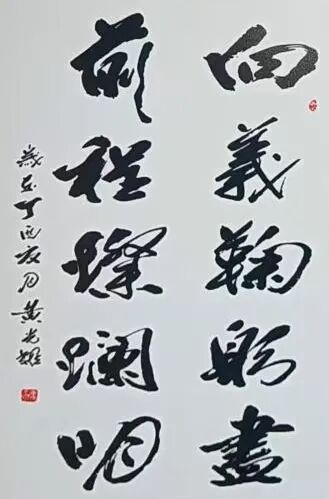 向義鞠躬盡
前程燦斕明
歲在丁酉夜月黃光雄